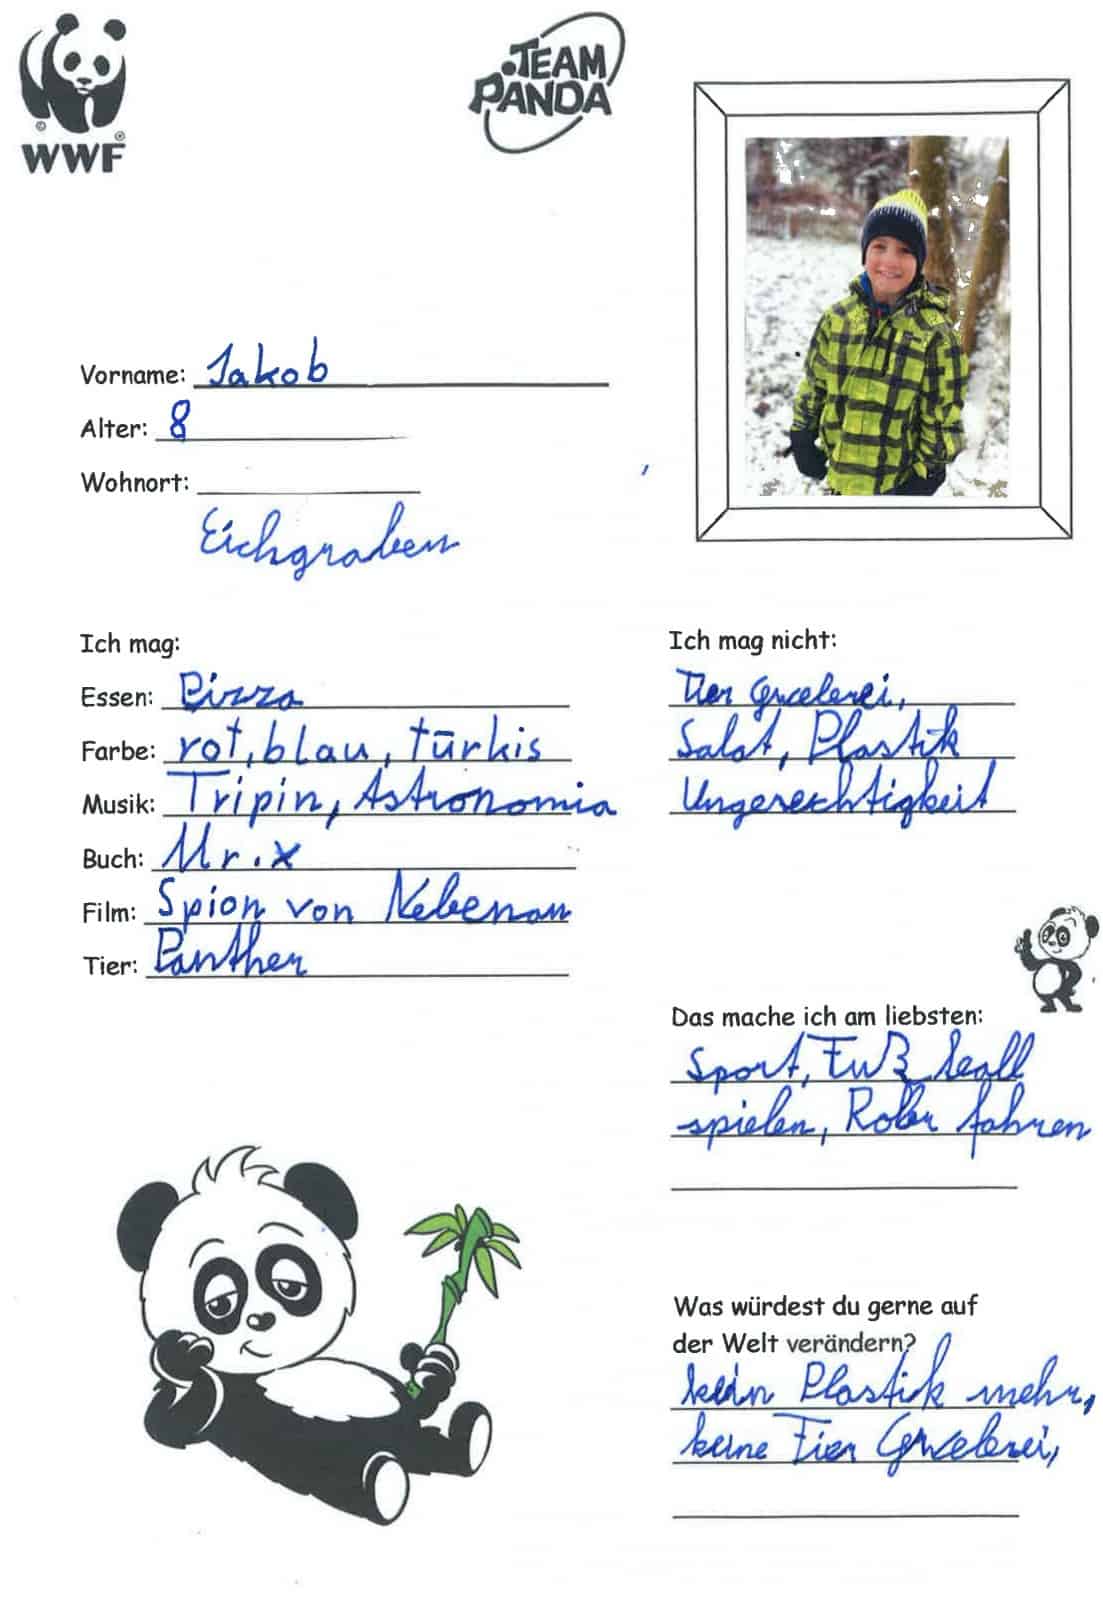 WWF
TEAM
PANDA
Vorname: Jakob
Alter: 8
Wohnort:
Eichgraben
Ich mag:
Essen: Pizza
Farbe: rot, blau, türkis
Musik: Tripin, Astronomia
Buch: Mr. x
Film: Spion von Nebenan
Tier: Panther
Ich mag nicht:
Tier Gwelerei,
Salat, Plastik
Ungerechtigkeit
Das mache ich am liebsten:
Sport, Fuß ball
spielen, Roller fahren
Was würdest du gerne auf
der Welt verändern?
kein Plastik mehr,
keine Tier Gwelerei,